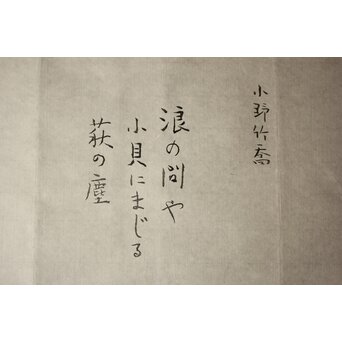 小野竹喬
浪の間や
小貝にまじる
萩の塵